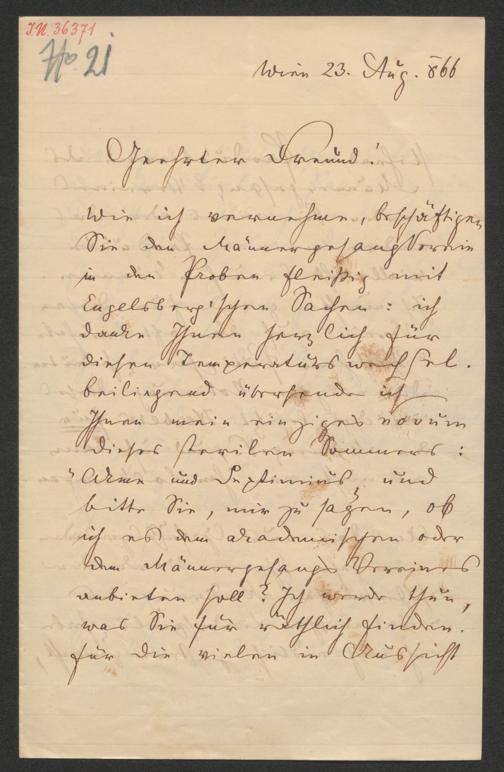 I.N. 36371
No. 21
Wien 23. Aug. 866
Geehrter Freund!
Wie ich vernehme, beschäftigen
Sie den Männergesangverein
in den Proben fleißig mit
Engelsberg'schen Sachen: ich
danke Ihnen herzlich für
diesen Temperaturswechsel.
beiliegend übersende ich
Ihnen mein einziges novum
dieses sterilen Sommers:
"Acme und Septimius, und
bitte Sie, mir zu sagen, ob
ich es dem akademischen oder
dem Männergesangs Vereines
anbieten soll? Ich werde thun,
was Sie für räthlich finden.
für die vielen in Aussicht